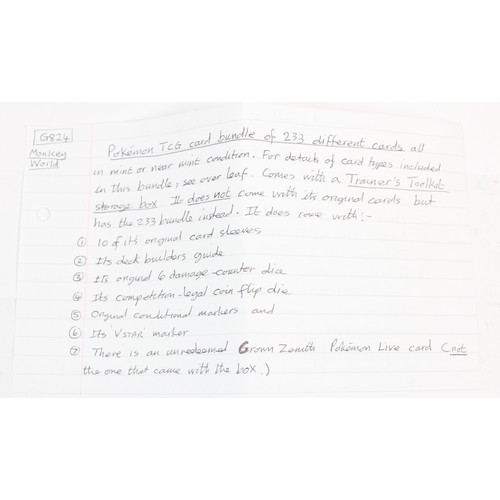 G824
Monkey
World
Pokémon TCG card bundle of 233 different cards all
in mint or near mint condition. For details of card types included
in this bundle, see over leaf. Comes with a Trainer's Toolkit
storage box It does not come with its original cards but
has the 233 bundle instead. It does come with:-
① 10 of its original card sleeves
② Its deck builders guide
③ Its original 6 damage-counter dice
④ Its competition-legal coin flip die
⑤ Original conditional markers and
⑥ Its 'VSTAR' marker
⑦ There is an unredeemed Crown Zenith Pokémon Live card (not
the one that came with the box.)